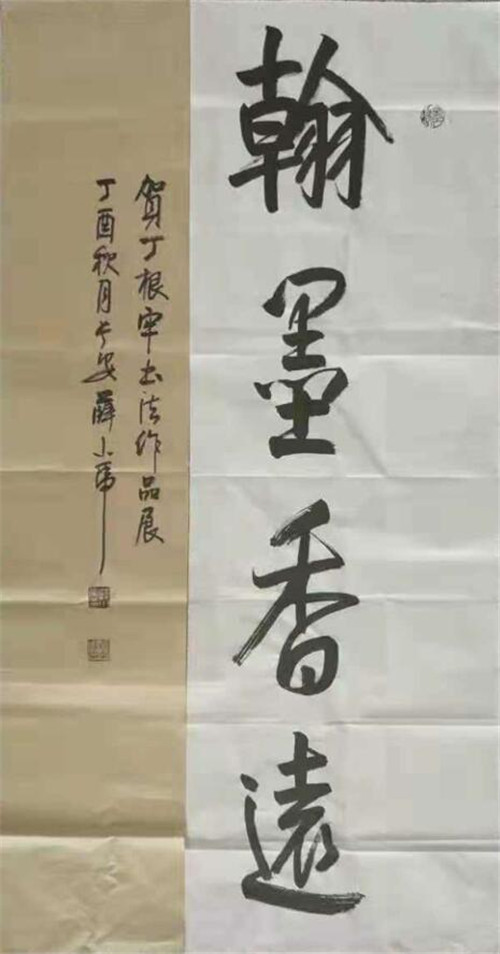 翰墨香遠
賀丁根牢书法作品展
丁酉秋月长安薛小虎